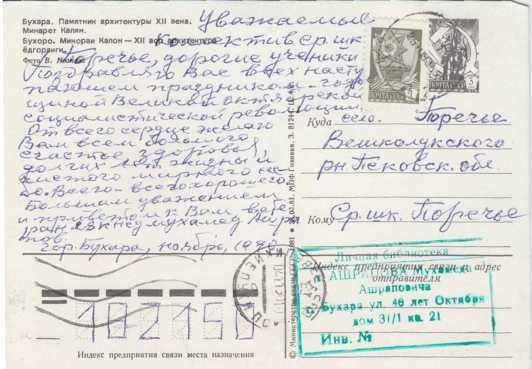 Бухара. Памятник архитектуры XII века.
Минарет Калян.
Бухоро. Минораи Калон — XII аср архитектура
ёдгорлиги.
Фото В.
Уважаемые
Коллектив ср. шк.
Поречье, дорогие ученики
Поздравляю Вас всех насту
пающем праздником - годо
щиной Великой октябрьской
социалистической революции.
От всего сердце желаю
Вам всем большого
счастье, здоровья,
долгих лет жизни и
мирного на
бо. Всего - всего хорошего.
Большим уважением
и приветом к Вам вете
ран Мухаммад
гор. Бухара, ноябрь, 198
Куда село. Поречье
Великолукского
р-н Псковск. обл.
Кому Ср. шк. Поречье
Индекс предприятия связи и адрес
отправителя
Личная библиотека
АШРАПОВА
Ашраповича
Бухара ул. 40 лет Октября
дом 31/1 кв. 21
Инв. №
182150
Индекс предприятия связи места назначения
© Министерство